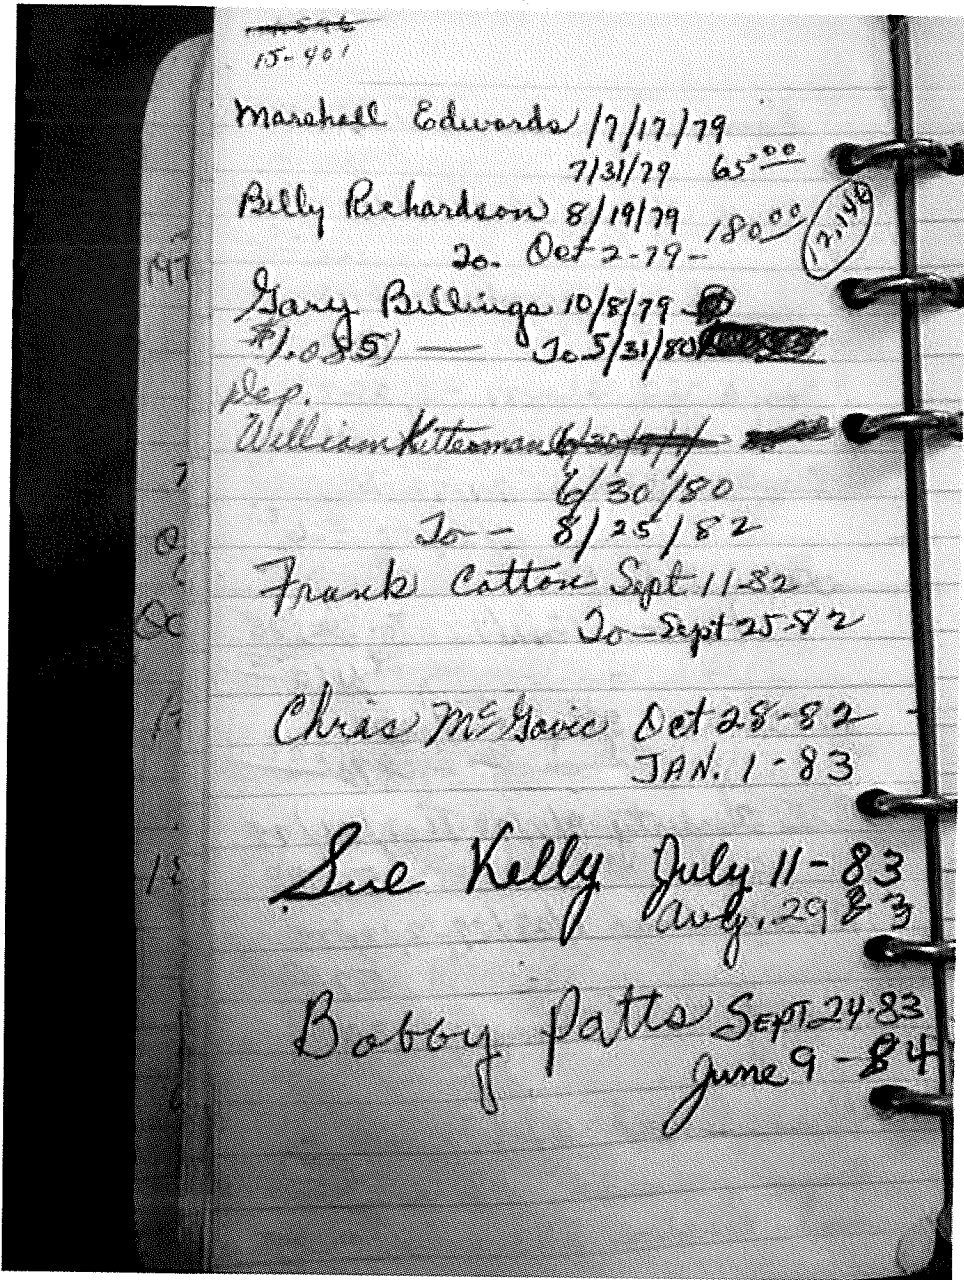 15-401
Marshall Edwards 7/17/79
7/31/79 65.00
Billy Richardson 8/19/79 180.00 12,146
To. Oct 2-79-
Gary Billings 10/8/79
$1.085) — To 5/31/80
Dep.
William Kitterman
6/30/80
To — 8/25/82
Frank Cotton Sept 11-82
To — Sept 25-82
Chris McGavic Oct 28-82 -
JAN. 1-83
Sue Kelly July 11-83
Aug. 29 83
Bobby Patts SEPT. 24-83
June 9-84